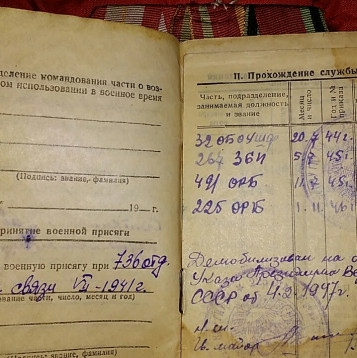 деление командования части о воз-
ом использовании в военное время
(Подпись: звание, фамилия)
19 г.
ринятие военной присяги
военную присягу при 736 отд.
связи VII-1941г.
ование части, число, месяц и год)
(Подпись: звание, фамилия)
II. Прохождение службы
Часть, подразделение,
занимаемая должность
и звание
Месяц
и число
Год и №
приказа
20.7 44г.
267 ЗСП 5.7 45г.
491 ОРБ 11.7 45г.
225 ОРБ 1.11 46г.
Демобилизован на о
Указа Президиума Ве
СССР от 4.2.1947г.
майор